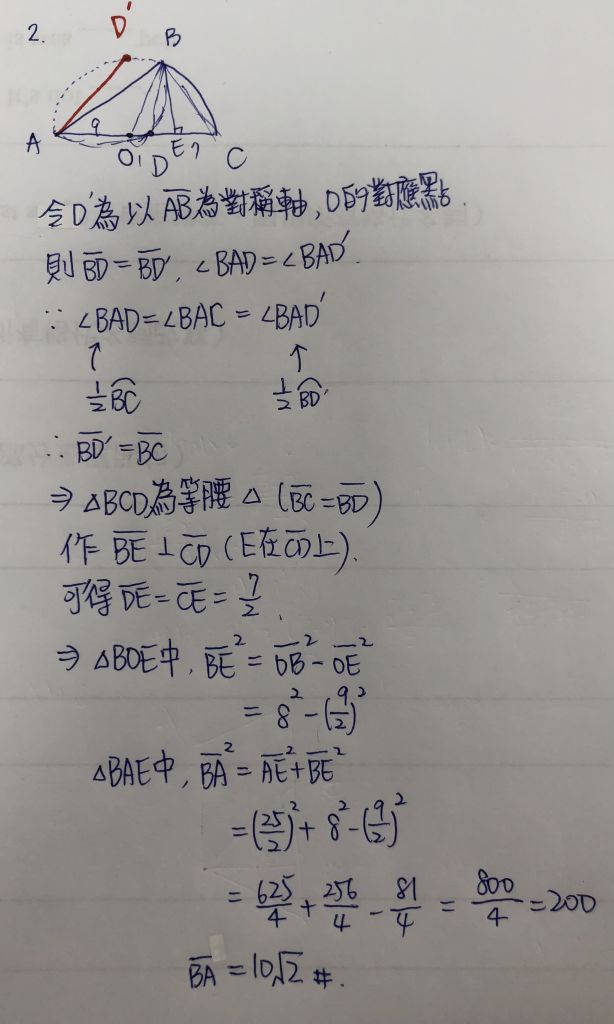 2.
D'
B
A
9
O
1
D
E
7
C
令D'為以 A̅B̅ 為對稱軸, D的對應點.
則 B̅D̅ = B̅D̅', ∠BAD = ∠BAD'.
∵ ∠BAD = ∠BAC = ∠BAD'
↑ ↑
½ B͡C ½ B͡D'
∴ B̅D̅' = B̅C̅
⇒ △BCD為等腰△ (B̅C̅ = B̅D̅)
作 B̅E̅ ⊥ C̅D̅ (E在 C̅D̅ 上).
可得 D̅E̅ = C̅E̅ = 7/2.
⇒ △BOE中, B̅E̅² = O̅B̅² - O̅E̅²
= 8² - (9/2)²
△BAE中, B̅A̅² = A̅E̅² + B̅E̅²
= (25/2)² + 8² - (9/2)²
= 625/4 + 256/4 - 81/4 = 800/4 = 200
B̅A̅ = 10√2 #.